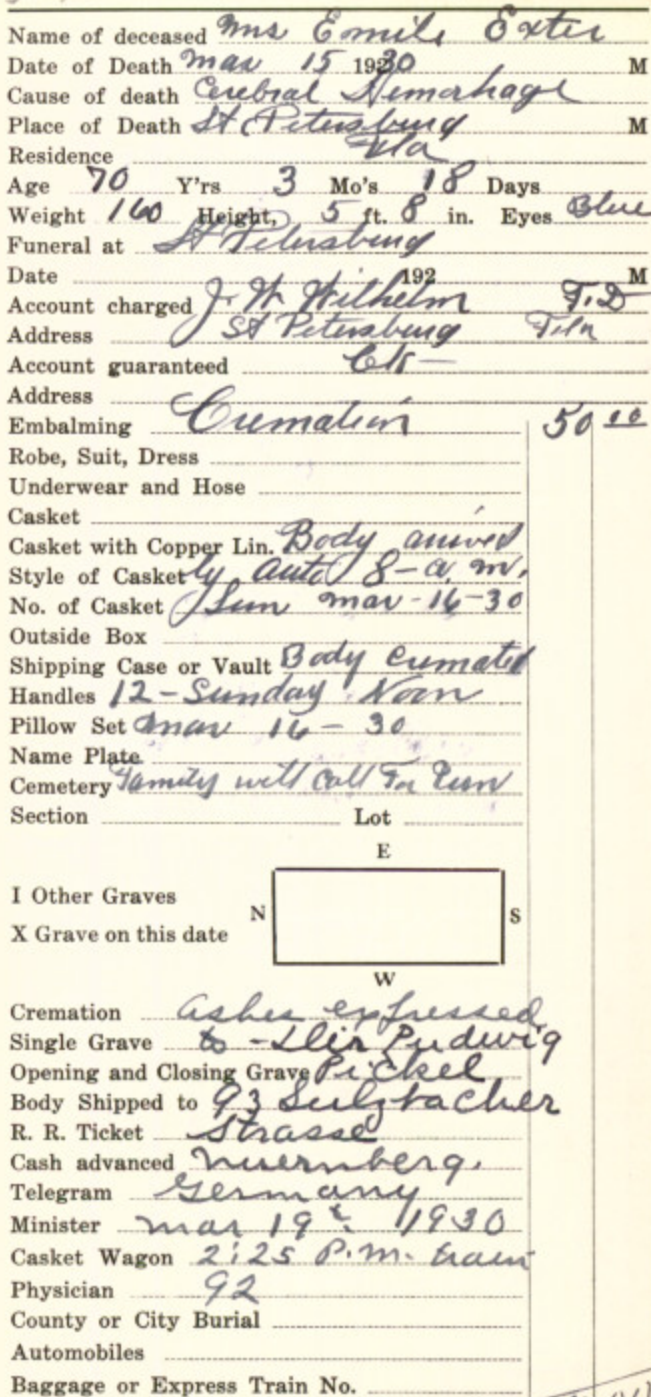 Name of deceased Mrs Emile Exter
Date of Death Mar 15 1930 M
Cause of death Cerebral Hemorhage
Place of Death St Petersburg M
Residence Fla
Age 70 Y'rs 3 Mo's 18 Days
Weight 160 Height, 5 ft. 8 in. Eyes Blue
Funeral at St Petersburg
Date 192 M
Account charged J. W. Wilhelm F.D
Address St Petersburg Fla
Account guaranteed
Address
Embalming Cremation 50 00
Robe, Suit, Dress
Underwear and Hose
Casket
Casket with Copper Lin. Body arrived
Style of Casket by auto 8-a.m.
No. of Casket Sun mar-16-30
Outside Box
Shipping Case or Vault Body cremated
Handles 12-Sunday Noon
Pillow Set mar 16-30
Name Plate
Cemetery Family will call For Urn
Section Lot
E
I Other Graves
N S
X Grave on this date
W
Cremation ashes expressed
Single Grave to -
Opening and Closing Grave Pickel
Body Shipped to 93 Sulzbacher
R. R. Ticket Strasse
Cash advanced Nuernberg.
Telegram Germany
Minister mar 19 1930
Casket Wagon 2:25 P.m. train
Physician 92
County or City Burial
Automobiles
Baggage or Express Train No.